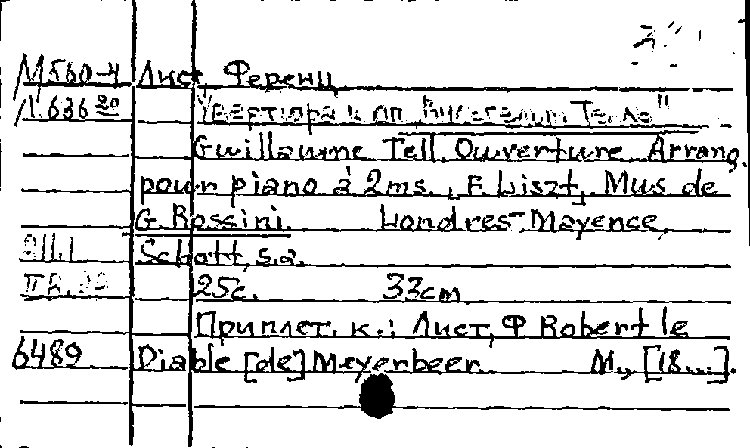 М560-4 Лист, Ференц
Л.636 20 Увертюра к оп. "Вильгельм Телль"
Guillaume Tell. Ouverture. Arrang.
pour piano à 2ms., F. Liszt, Mus de
G. Rossini. Londres-Mayence,
Schott, s.a.
25c. 33cm
Приплет. к.: Лист, Ф Robert le
6489 Diable [de] Meyerbeer M., [18...].